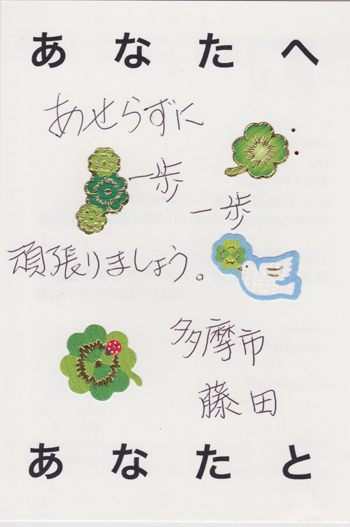 あなたへ
あせらずに
一歩
一歩
頑張りましょう。
多摩市
藤田
あなたと